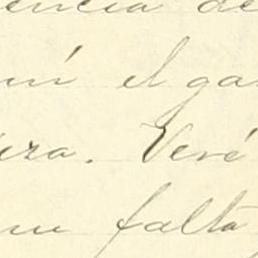 encia de
el ga
era. Veré
falta